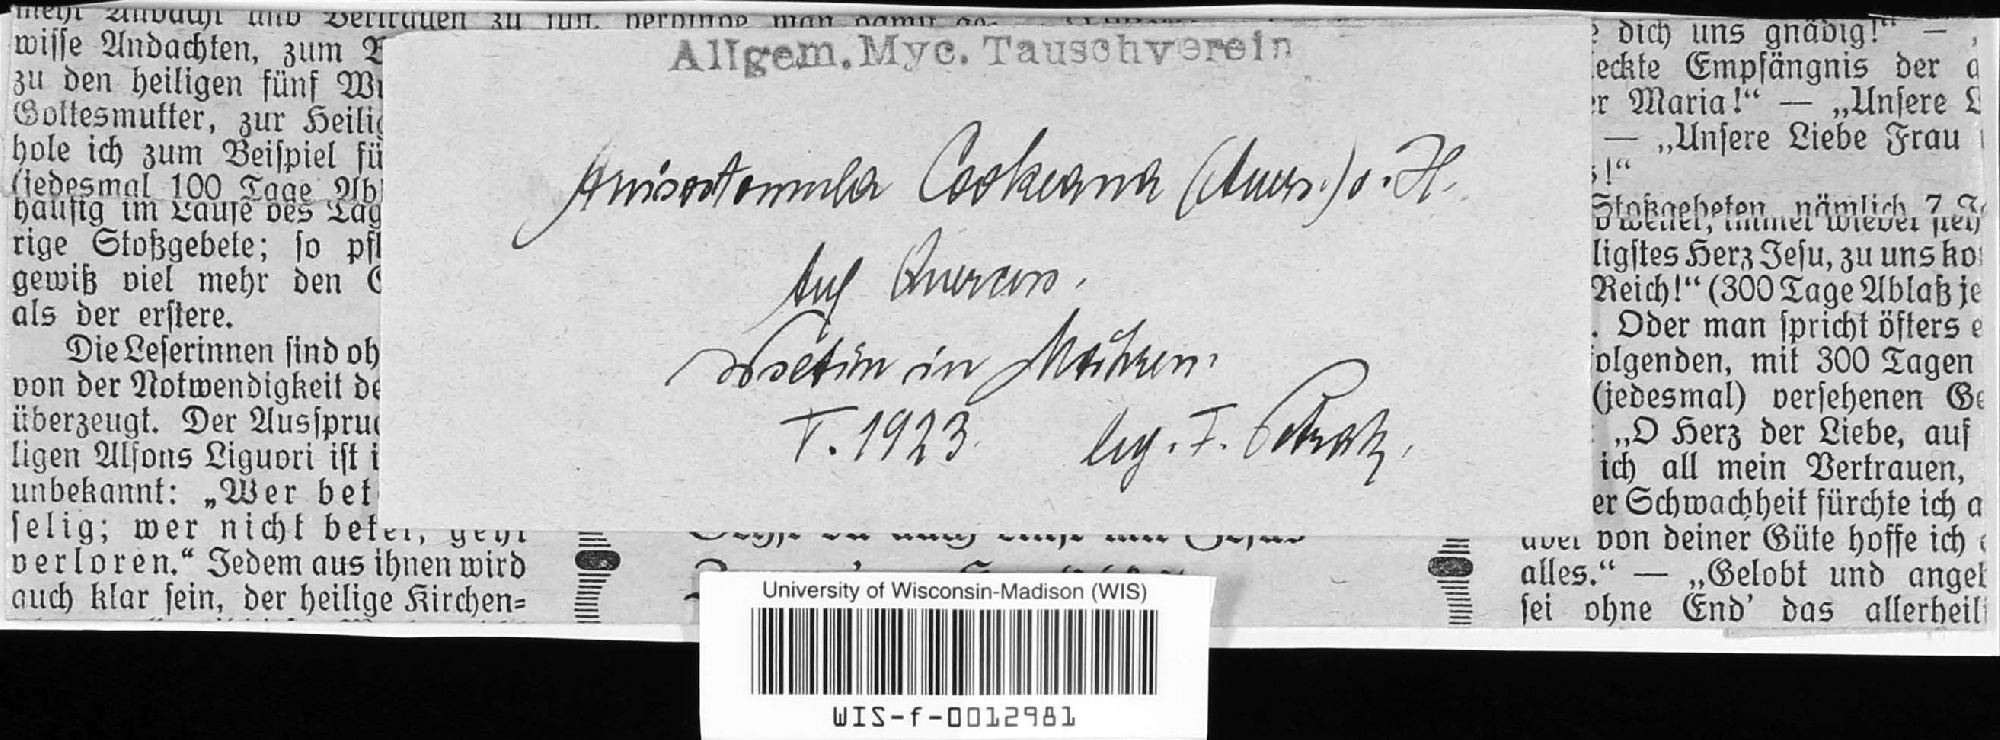 wisse Andachten, zum
zu den heiligen fünf
Gottesmutter, zur
hole ich zum Beispiel
(jedesmal 100 Tage
häufig im Laufe des
rige Stoßgebete; so
gewiß viel mehr den
als der erstere.
Die Leserinnen sind
von der Notwendigkeit
überzeugt. Der
ligen Alfons Liguori ist
unbekannt: „Wer
selig; wer nicht betet, geht
verloren.“ Jedem aus ihnen wird
auch klar sein, der heilige Kirchen=
Allgem. Myc. Tauschverein
Anisostomula Cookeana (Auers.) v. H.
Auf Quercus.
Wsetin in Mähren.
V. 1923. leg. F. Petrak.
dich uns gnädig!“ —
Empfängnis der
Maria!“ — „Unsere
— „Unsere Liebe Frau
Stoßgebeten, nämlich 7
Herz Jesu, zu uns
Reich!“ (300 Tage Ablaß je
Oder man spricht öfters
mit 300 Tagen
(jedesmal) versehenen
„O Herz der Liebe, auf
ich all mein Vertrauen,
Schwachheit fürchte ich
aber von deiner Güte hoffe ich
alles.“ — „Gelobt und
sei ohne End' das
University of Wisconsin-Madison (WIS)
WIS-f-0012981